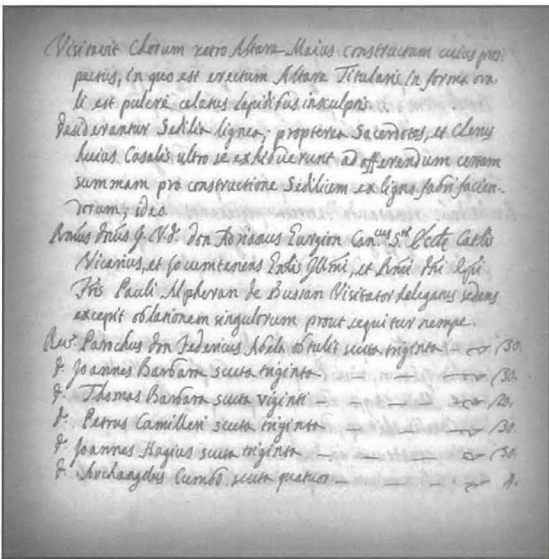 Visitavit Chorum retro Altare Maius constructum cuius pros-
pectus, in quo est erectum Altare Titularis in forma ova
li est pulcre celatus lapidibus insculptis.
Desiderantur Sedilia lignea; propterea Sacerdotes, et Clerus
huius Casalis ultro se exhibuerunt ad offerendum certam
summam pro constructione Sedilium ex ligno fabrefacien-
dorum; ideo
don Can.cus Eccle Cathlis
Vicarius, et locumtenens Illmi, et Rmi dni
Fris Pauli Alpheran de Bussan Visitator delegatus sedens
excepit oblationem singulorum prout sequitur nempe.
Rev. Parochus don Federicus obtulit scuta triginta — 30.
d. Joannes Barbara scuta triginta — 30.
d. Thomas Barbara scuta viginti — 20.
d. Petrus Camilleri scuta triginta — 30.
d. Joannes Hagius scuta triginta — 30.
d. Archangelus Cumbo scuta quatuor — 4.